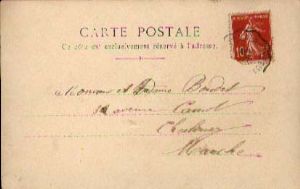 CARTE POSTALE
Ce côté est exclusivement réservé à l'adresse.
Monsieur et Madame
avenue Carnot
Manche
10